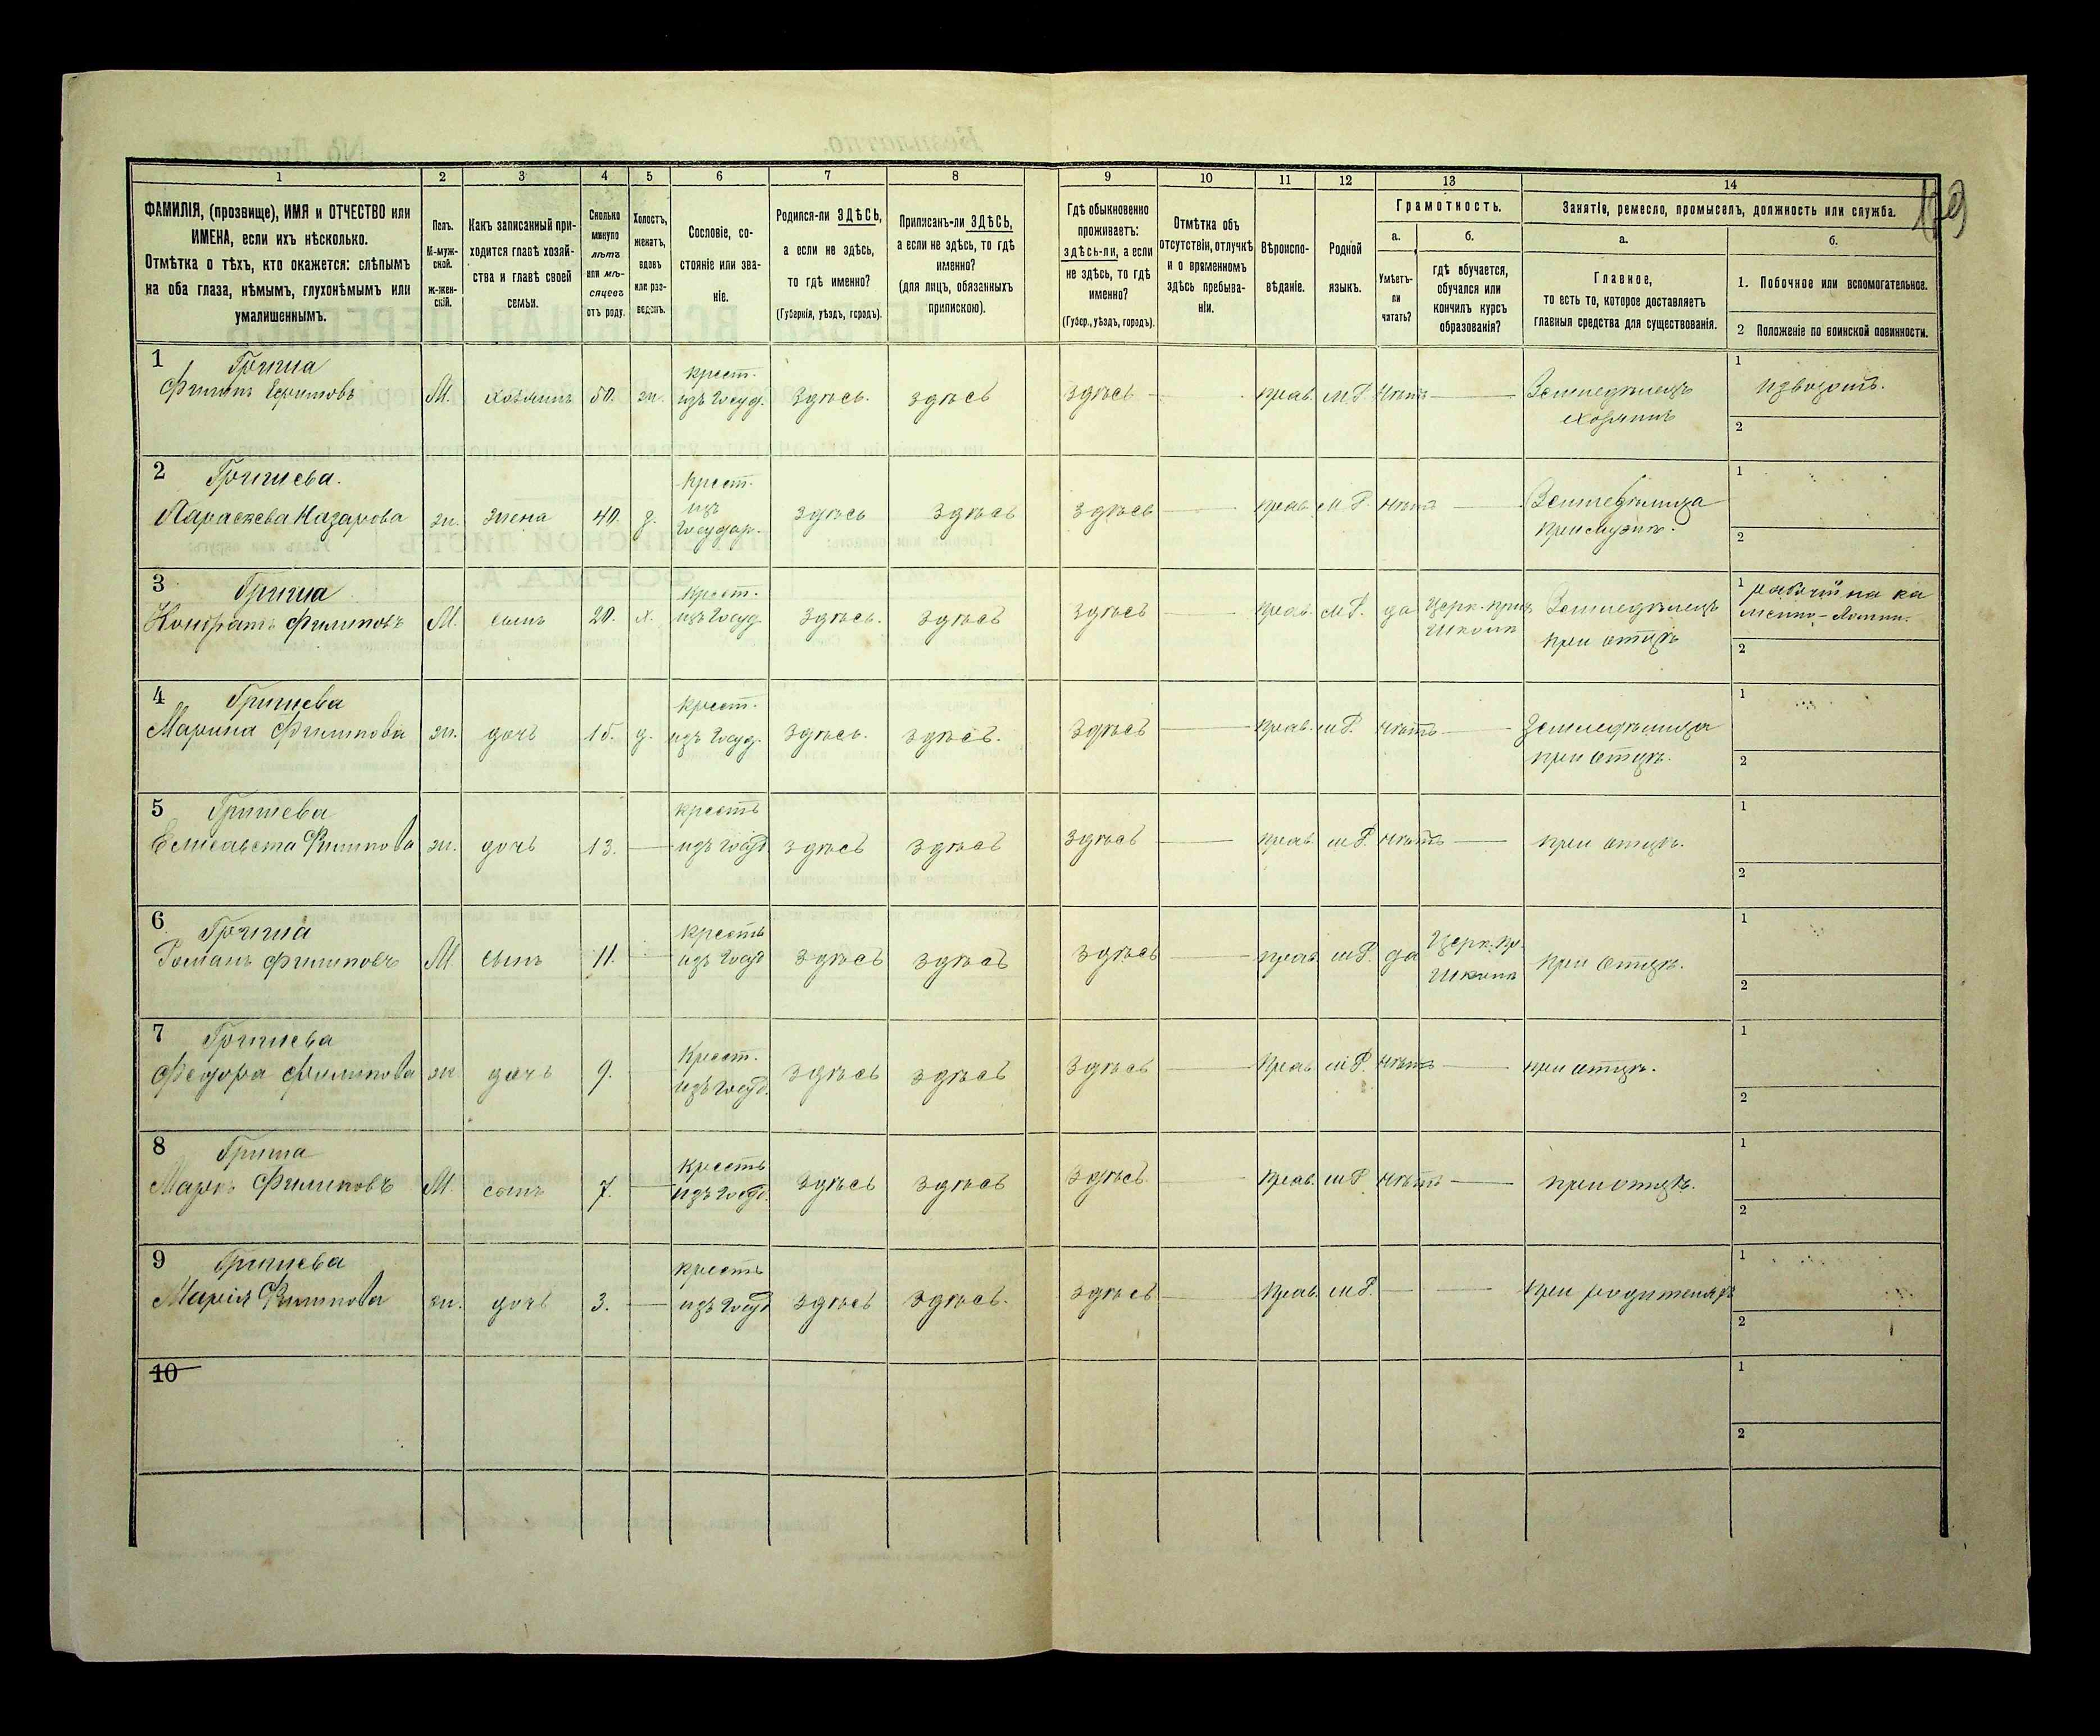 1 2 3 4 5 6 7 8 9 10 11 12 13 14
ФАМИЛІЯ, (прозвище), ИМЯ и ОТЧЕСТВО или
ИМЕНА, если ихъ нѣсколько.
Отмѣтка о тѣхъ, кто окажется: слѣпымъ
на оба глаза, нѣмымъ, глухонѣмымъ или
умалишеннымъ.
Полъ.
М-муж-
ской.
ж-жен-
скій.
Какъ записанный при-
ходится главѣ хозяй-
ства и главѣ своей
семьи.
Сколько
минуло
лѣтъ
или мѣ-
сяцевъ
отъ роду.
Холостъ,
женатъ,
вдовъ
или раз-
веденъ.
Сословіе, со-
стояніе или зва-
ніе.
Родился-ли ЗДѢСЬ,
а если не здѣсь,
то гдѣ именно?
(Губернія, уѣздъ, городъ).
Приписанъ-ли ЗДѢСЬ,
а если не здѣсь, то гдѣ
именно?
(для лицъ, обязанныхъ
припискою).
Гдѣ обыкновенно
проживаетъ:
здѣсь-ли, а если
не здѣсь, то гдѣ
именно?
(Губер., уѣздъ, городъ).
Отмѣтка объ
отсутствіи, отлучкѣ
и о временномъ
здѣсь пребыва-
ніи.
Вѣроиспо-
вѣданіе.
Родной
языкъ.
Грамотность.
а.
Умѣетъ-
ли
читать?
б.
гдѣ обучается,
обучался или
кончилъ курсъ
образованія?
Занятіе, ремесло, промыселъ, должность или служба.
а.
Главное,
то есть то, которое доставляетъ
главныя средства для существованія.
б.
1. Побочное или вспомогательное.
2 Положеніе по воинской повинности.
1
Филипъ М. хозяинъ 50. ж. крест. изъ Госуд. Здѣсь. здѣсь здѣсь прав. м.Р. нѣтъ Земледѣлецъ хозяинъ 1 извозомъ. 2
2
Параскева Назарова ж. жена 40. з. крест. изъ Государ. здѣсь здѣсь здѣсь прав. м.Р. нѣтъ 1 2
3
Кондратъ Филиповъ М. сынъ 20. х. крест. изъ Госуд. здѣсь. здѣсь здѣсь прав. м.Р. да Церк. прих школѣ Земледѣлецъ при отцѣ 1 рабочій на ка 2
4
Марина Филипова ж. дочь 15. д. крест. изъ Госуд. здѣсь. здѣсь. здѣсь прав. м.Р. нѣтъ при отцѣ. 1 2
5
Елисавета Филипова ж. дочь 13. крестъ изъ Госуд здѣсь здѣсь здѣсь прав. м.Р. нѣтъ при отцѣ. 1 2
6
Романъ Филиповъ М. сынъ 11. крестъ изъ Госуд здѣсь здѣсь здѣсь прав м.Р. да Церк. пр. школѣ при отцѣ. 1 2
7
Федора Филипова ж дочь 9. Крест. изъ Госуд. здѣсь здѣсь здѣсь прав м.Р. нѣтъ при отцѣ. 1 2
8
Маркъ Филиповъ М. сынъ 7. Крестъ изъ Госуд. здѣсь здѣсь здѣсь прав. м.Р. нѣтъ при отцѣ. 1 2
9
Марія Филипова ж. дочь 3. крестъ изъ Госуд здѣсь здѣсь. здѣсь прав. м.Р. при родителяхъ 1 2
10 1 2